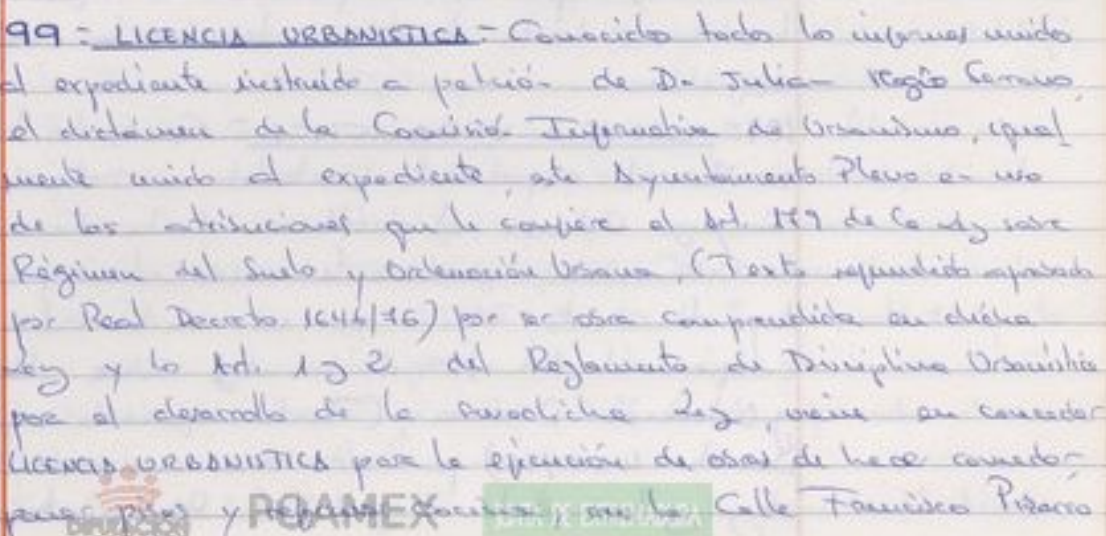 99 = LICENCIA URBANISTICA = Conocidos todos los informes unidos
al expediente instruido a petición de D. Julian Serrano,
el dictámen de la Comisión Informativa de Urbanismo, igual
mente unido al expediente, este Ayuntamiento Pleno en uso
de las atribuciones que le confiere el Art. 179 de la Ley sobre
Régimen del Suelo y Ordenación Urbana, (Texto refundido aprobado
por Real Decreto 1646/76) por ser obra comprendida en dicha
Ley y los Art. 1 y 2 del Reglamento de Disciplina Urbanística
para el desarrollo de la susodicha Ley, viene en conceder
LICENCIA URBANISTICA para la ejecución de obras de hace comedor
pisos y cocina, en la Calle Francisco Pizarro
DIPUTACIÓN POAMEX JUNTA DE EXTREMADURA